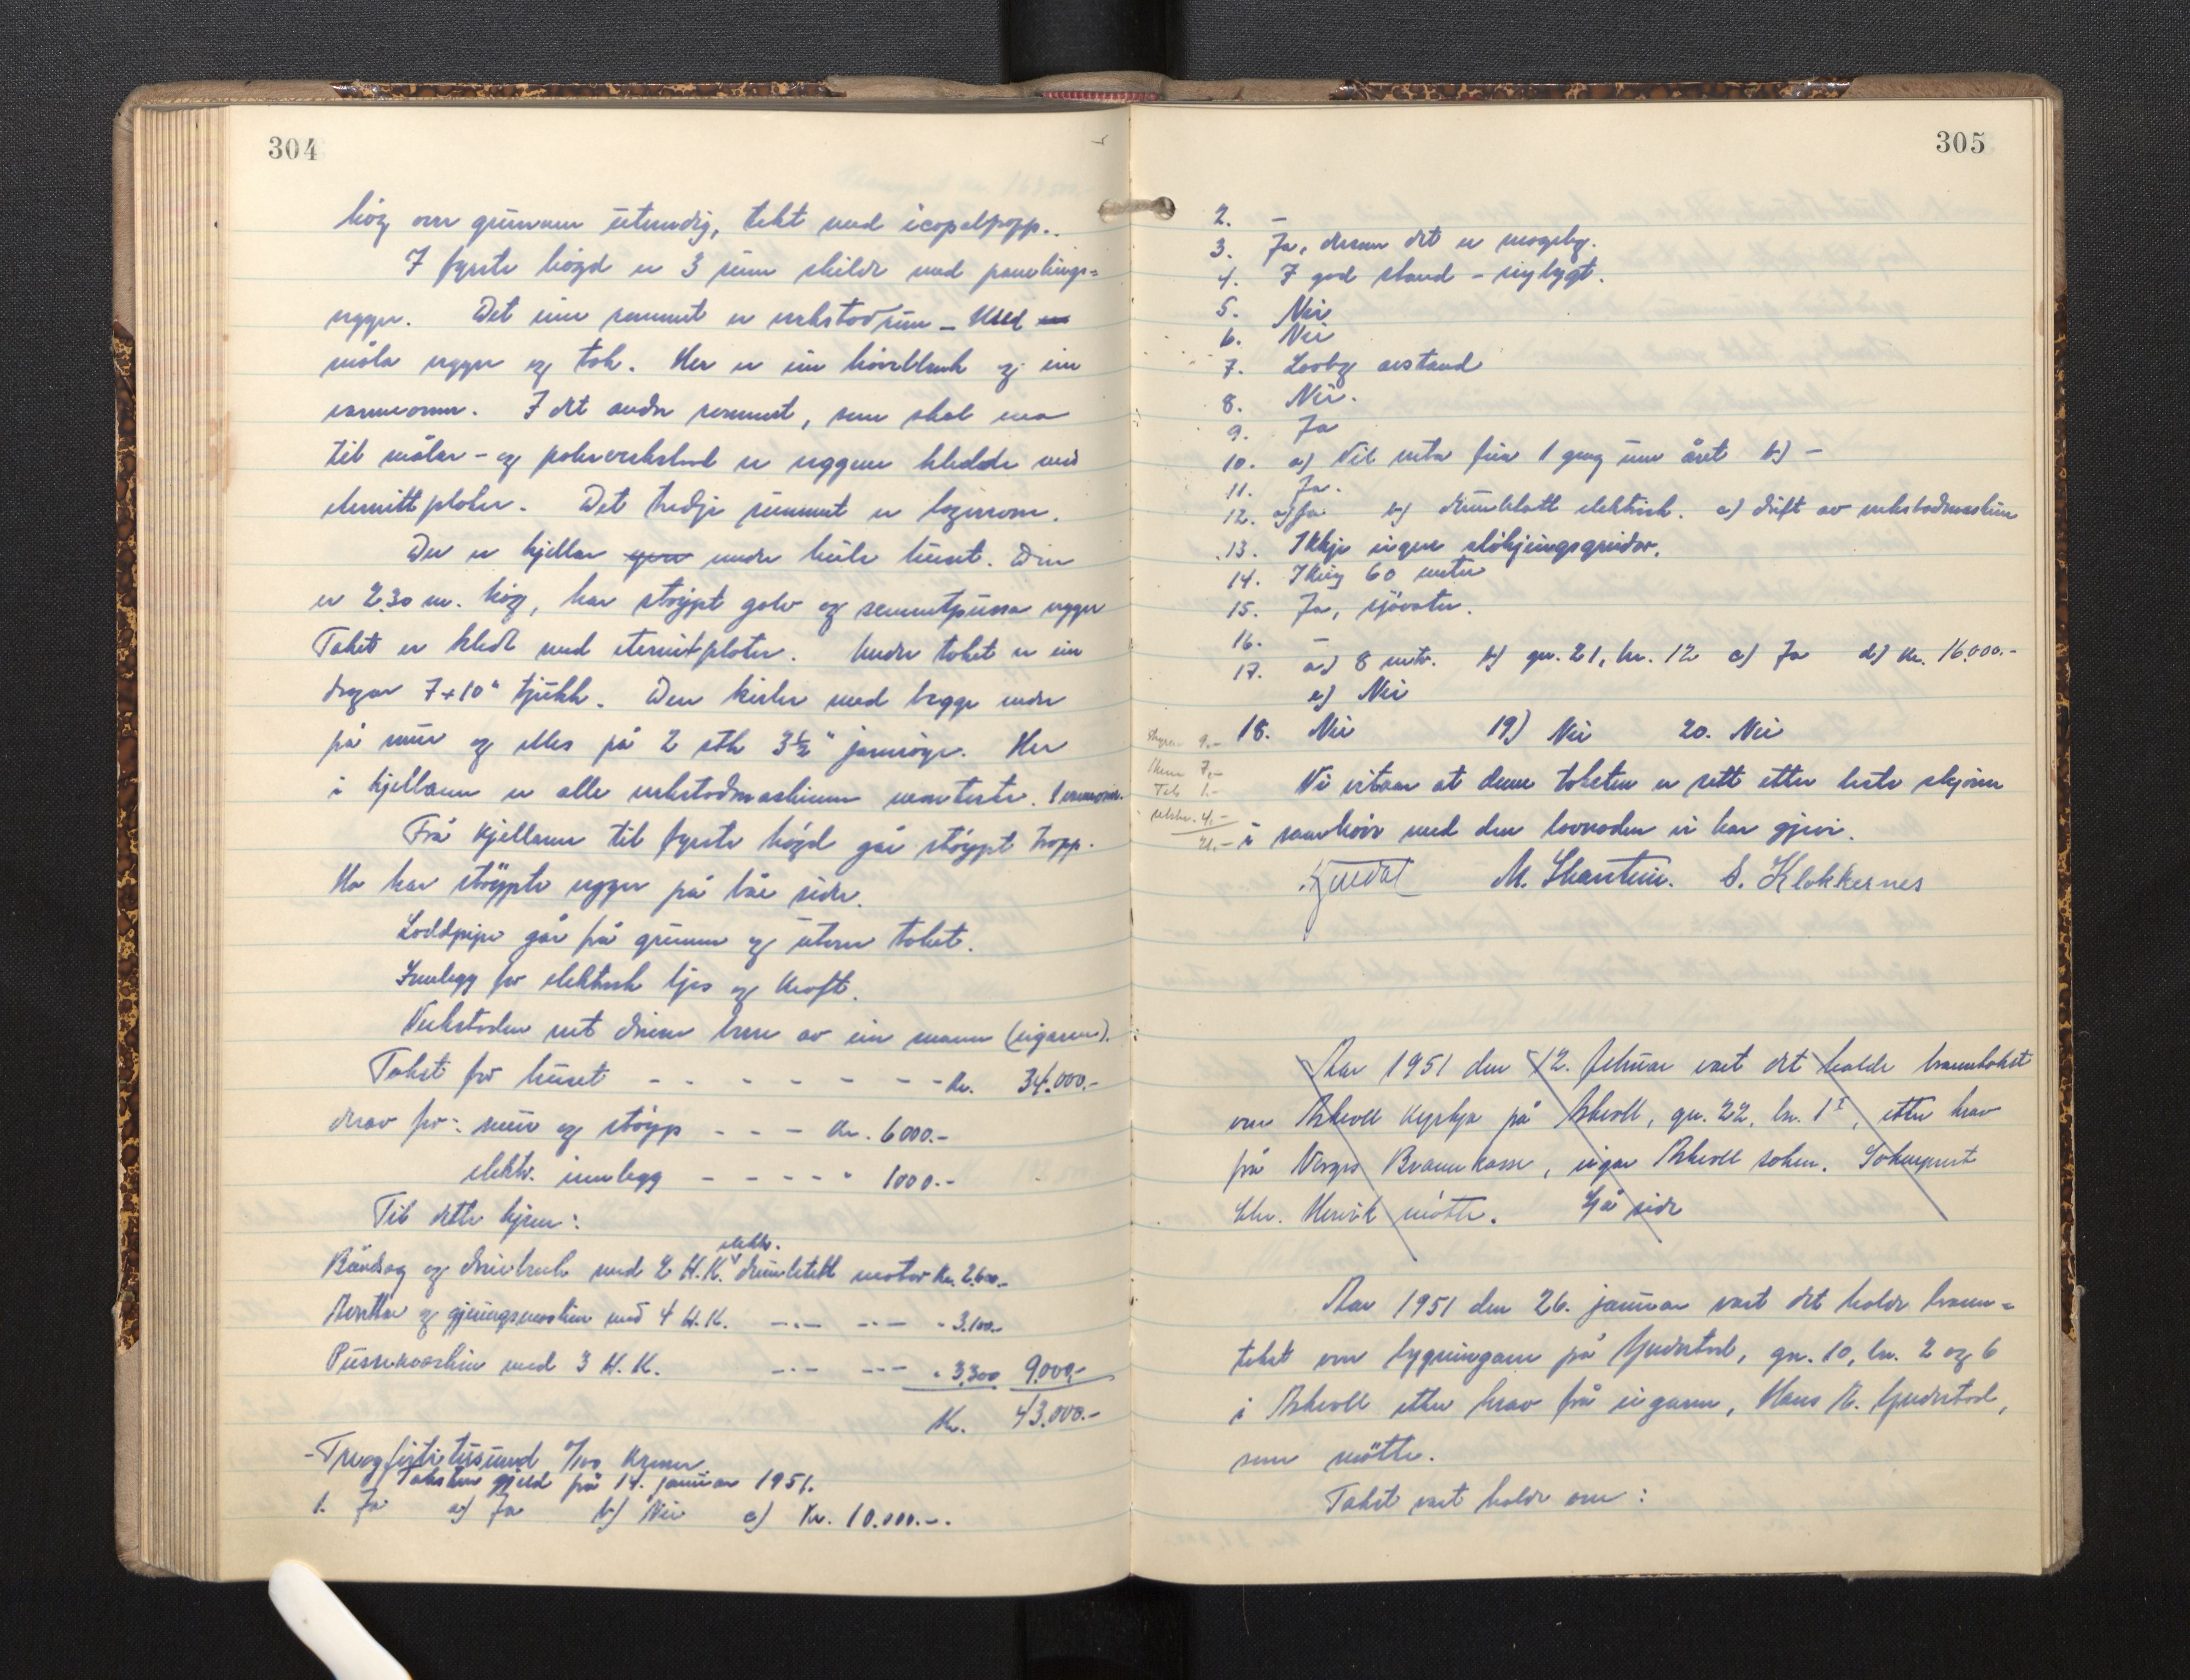 304
høg over grunnen utvendig, tekt med icopalpapp.
I fyrste høgd er 3 rum skilde med panelings-
vegger. Det eine rommet er verkstadrum – Med
måla vegger og tak. Her er ein høvelbenk og ein
varmeomn. I det andre rommet, som skal vera
til målar- og polerverkstad er veggene kledde med
eternittplater. Det tredje rummet er lagerrom.
Der er kjellar under heile huset. Den
er 2.30 m. høg, har støypt golv og sementpussa vegger
Taket er kledt med eternitplater. Under taket er ein
dragar 7 + 10" tjukk. Den kviler med begge ender
på mur og elles på 2 stk 3½" jarnrøyr. Her
i kjellaren er alle verkstadmaskinene monterte.
Frå kjellaren til fyrste høgd går støypt trapp.
Ho har støypte vegger på båe sider.
Loddpipe går frå grunnen og utover taket.
Innlegg for elektrisk ljos og kraft.
Verkstaden vert driven berre av ein mann (eigaren).
Takst for huset - - - - - - - - kr. 34.000.-
derav for: mur og støyp - - - kr. 6000.-
elektr. innlegg - - - - " 1000.-
Til dette kjem:
elektr.
Bandsag og dreiebenk med 2 H.K. drumletekt motor kr. 2600.-
Avrettar og gjeringsmaskin med 4 H.K. -..- -..- - 3.100.-
Pussemaskin med 3 H.K. -..- -..- " 3.300 9.000.-
Kr. 43.000.-
- Treogførtitusund 0/100 kroner
Taksten gjeld frå 14. januar 1951.
1. Ja a) Ja b) Nei c) Kr. 10.000.-.
305
2. –
3. Ja, dersom det er mogeleg.
4. I god stand – nybygt.
5. Nei
6. Nei
7. Lovleg avstand
8. Nei.
9. Ja
10. a) Vil verta feia 1 gong um året b) –
11. Ja.
12. a) Ja b) elektrisk. c) drift av verkstadmaskiner
13. Ikkje eigne sløkjingsgreidor.
14. Ikring 60 meter
15. Ja, sjøvatn.
16. –
17. a) 8 mtr. b) gn. 21, bn. 12 c) Ja d) kr. 16.000.-
e) Nei
18. Nei 19) Nei 20. Nei
9.-
7.-
1.-
4.-
21.-
Vi vitnar at denne taksten er sett etter beste skjønn
i samhøve med den lovnaden vi har gjevi.
M. Skarstein. S. Klokkernes
Aar 1951 den 12. februar vart det halde branntakst
over Askvoll kyrkje på Askvoll, gn. 22, bn. 1, etter krav
frå Norges Brannkasse, eigar Askvoll sokn. Sokneprest
Chr. Hervik møtte. Sjå side
Aar 1951 den 26. januar vart det halde brann-
takst over bygningane på Gjerdstad, gn. 10, bn. 2 og 6
i Askvoll etter krav frå eigaren, Hans A. Gjerdstad,
som møtte.
Takst vart halde over: